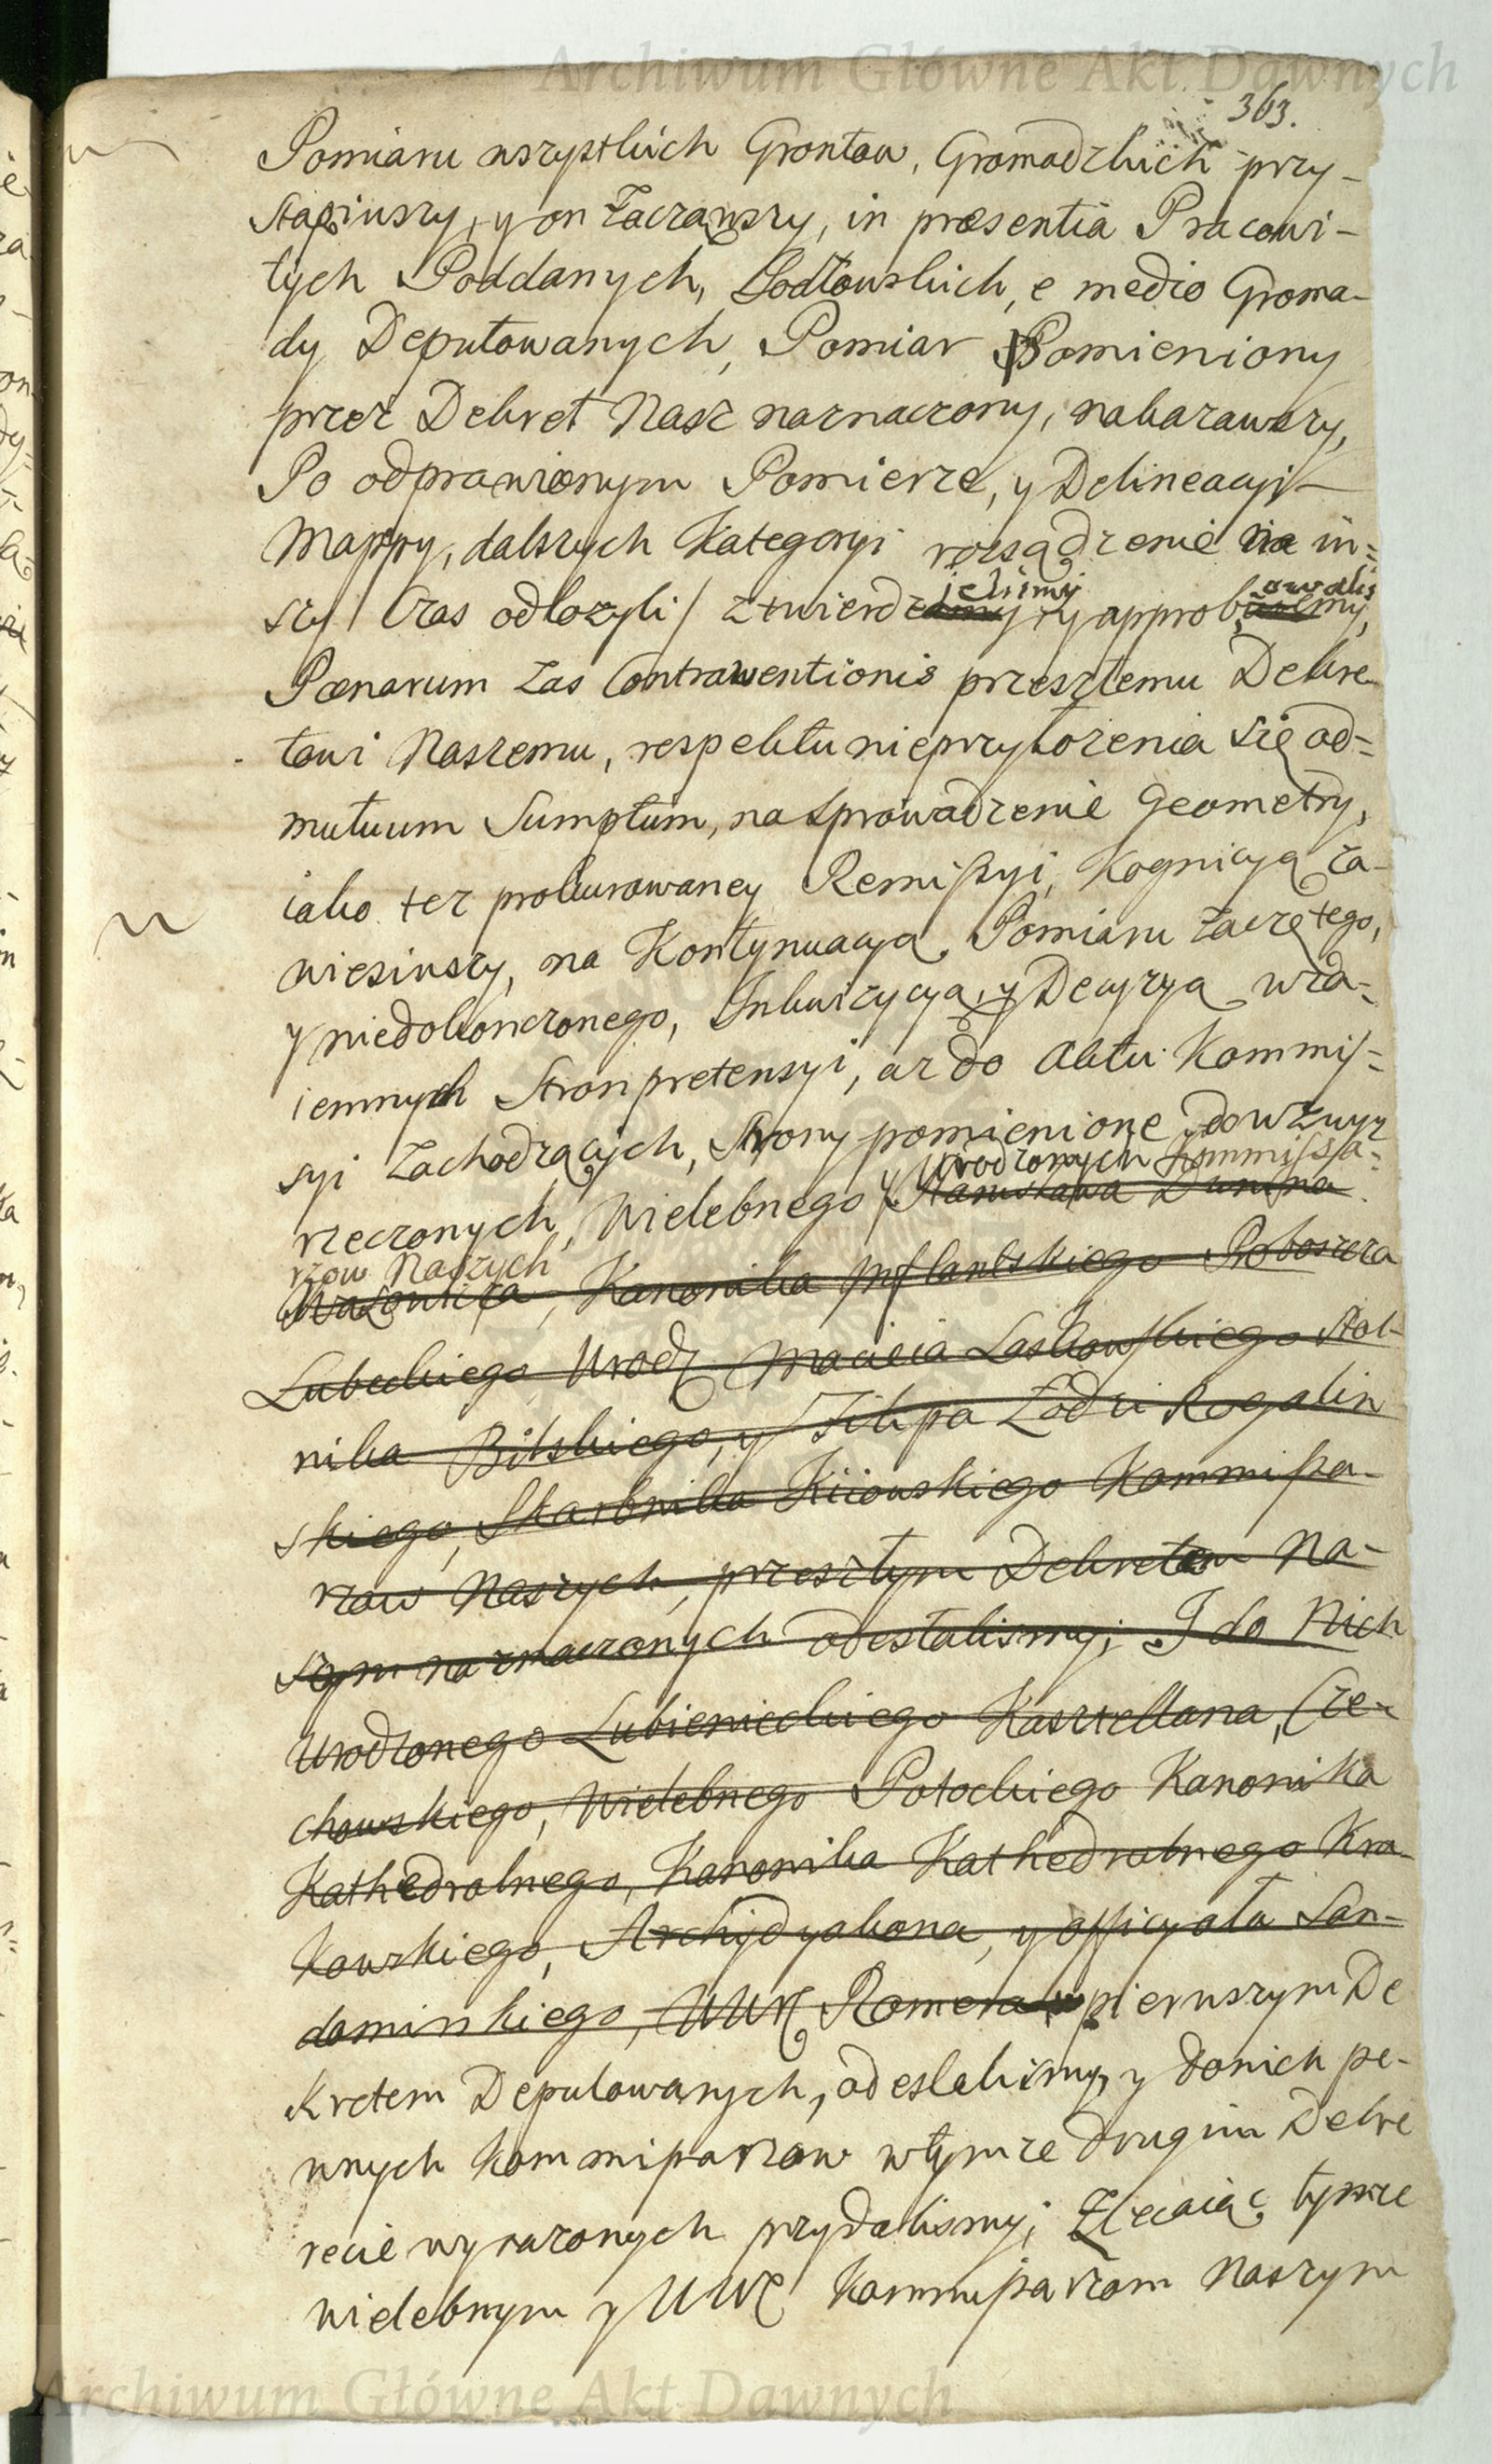 Archiwum Główne Akt Dawnych
363.
Pomiaru wszystkich Grontow, Gromadzkich przy-
stąpiwszy, y on Zacząwszy, in præsentia Pracowi-
tych Poddanych, Sodłowskich, e medio Groma-
dy Deputowanych, Pomiar Pomieniony
przez Dekret Nasz naznaczony, nakazawszy,
Po odprawionym Pomierze, y Delineacyi
Mappy, dalszych Kategoryi rozsądzenie na in=
szy Czas odłozyli / ztwierdzielismy, y approbowalismy,
Pœnarum Zas Contrawentionis przeszłemu Dekre-
towi Naszemu, respektu nieprzyłozenia się ad=
mutuum Sumptum, na Sprowadzenie Geometry,
iako tez prokurowaney Remissyi, Kognicyą za-
wiesiwszy, na Kontynuacyą Pomiaru Zaczętego,
y niedokonczonego, Inkwizycyą, y Decyzyą wza-
iemnych Stron pretensyi, az do Aktu Kommis=
syi Zachodzących, Strony pomienione do wzwyz
y Urodzonych Kommissa=
rzeczonych, Wielebnego Stanisława Dunina
rzow Naszych
Wąsowicza, Kanonika Inflantskiego Proboszcza
Lubeckiego Urodz Macieia Laskowskiego Stol-
nika Bilskiego, y Filipa Łodzi Rogalin
skiego, Skarbnika Kiiowskiego Kommissa-
rzow Naszych, przeszłym Dekretem Na-
szym naznaczonych odesłalismy; I do Nich
Urodzonego Lubienieckiego Kasztellana, Cze-
chowskiego, Wielebnego Potockiego Kanonika
Kathedralnego, Kanonika Kathedralnego Kra-
kowskiego, Archydyakona, y officyała San-
domirskiego, UUrz Romera w pierwszym De
kretem Deputowanych, odeslalismy, y donich pe-
wnych Kommissarzow wtymze drugim Dekre
recie wyrazonych przydalismy; Zlecaiąc tymze
wielebnym y UUrz Kommissarzom Naszym
Archiwum Główne Akt Dawnych